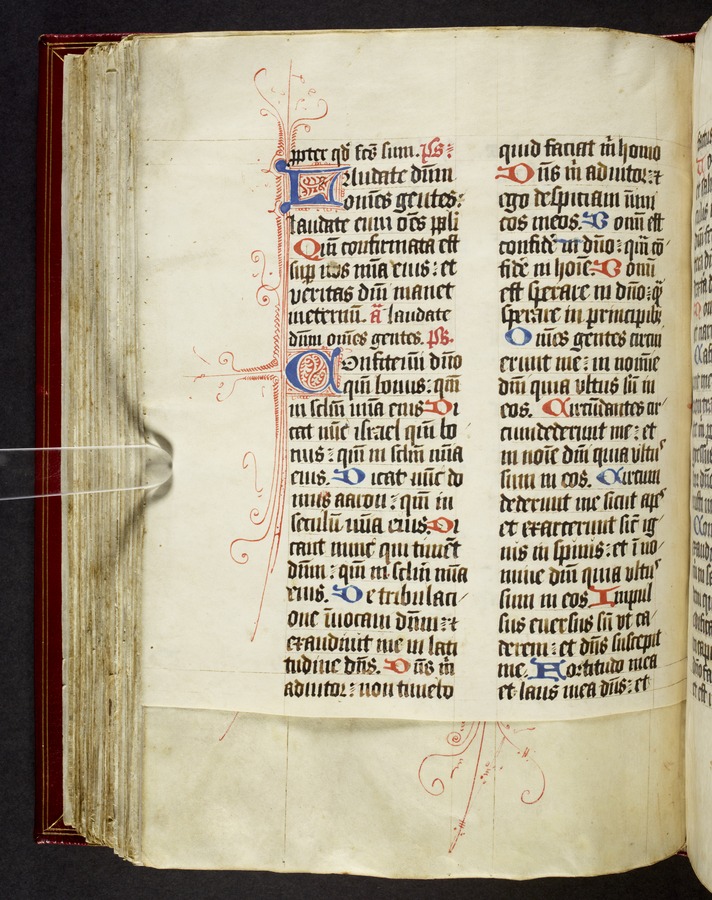 ppter qđ scōs sum. ps:
Laudate dūm
omnes gentes:
laudate eum oēs ppli
Qm̄ confirmata est
sup nos mīa eius: et
veritas dm̄ manet
ineternū. ā laudate
dūm omēs gentes. ps.
Confitemi dūo
qm̄ bonus: qm̄
in sclm̄ mīa eius Di
cat nūc israel qm̄ bo
nus: qm̄ in sclm̄ mīa
eius. Dicat nūc do
mus aaron: qm̄ in
seculū mīa eius. Di
cant nunc qui timēt
dūm: qm̄ in sclm̄ mīa
eius. De tribulaci
one īuocaui dūm: et
exaudiuit me in lati
tudine dn̄s. Dn̄s m̄
adiutor: non timebo
quid faciat m̄ homo
Dn̄s m̄ adiutor: et
ego despiciam īimi
cos meos. Bonū est
confiderē in dūo: qm̄ cō
fidē in hoīe. Bonū
est sperare in dūo: qm̄
sperare in principibꝫ
Omēs gentes circui
erunt me: in nomīe
dūi quia vltus sū in
eos. Circūdantes cir
cumdederunt me: et
in noīe dūi quia vltus
sum in eos. Circum
dederunt me sicut apes
et exarserunt sic̄ ig
nis in spinis: et ī no
mine dūi quia vltus
sum in eos. Impul
sus euersus sū vt ca
derem: et dn̄s suscepit
me. Fortitudo mea
et laus mea dn̄s: et